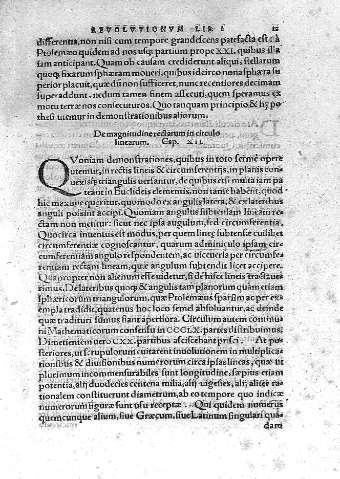 REVOLVTIONVM LIB. I. 12
differentia, non nisi cum tempore grandescens patefacta est: à
Ptolemæo quidem ad nos usq; partium prope XXI. quibus illa
iam anticipant. Quam ob causam crediderunt aliqui, stellarum
quoq; fixarum sphæram moueri, quibus idcirco nona sphæra su
perior placuit, quæ dum non sufficeret, nunc recentiores decimam
superaddunt, nedum tamen finem assecuti, quem speramus ex
motu terræ nos consecuturos. Quo tanquam principio & hypo
thesi utemur in demonstrationibus aliorum.
De magnitudine rectarum in circulo
linearum. Cap. XII.
QVoniam demonstrationes, quibus in toto ferme opere
utemur, in rectis lineis & circumferentijs, in planis con
uexisq; triangulis uersantur, de quibus etsi multa iam pa
teant in Euclideis elementis, non tamen habent, quod
hic maxime quæritur, quomodo ex angulis latera, & ex lateribus
anguli possint accipi. Quoniam angulus subtensam lineam re-
ctam non metitur: sicut nec ipsa angulum, sed circumferentia.
Quocirca inuentus est modus, per quem lineæ subtensæ cuilibet
circumferentiæ cognoscantur, quarum adminiculo ipsam cir-
cumferentiam angulo respondentem, ac uiceuersa per circumfe
rentiam rectam lineam, quæ angulum subtendit licet accipere.
Quapropter non alienum esse uidetur, si de hisce lineis tractaue
rimus. De lateribus quoq; & angulis tam planorum quàm etiam
sphæricorum triangulorum, quæ Ptolemæus sparsim ac per exe
mpla tradidit, quatenus hoc loco semel absoluantur, ac deinde
quæ tradituri sumus fiant apertiora. Circulum autem communi
Mathematicorum consensu in CCCLX. partes distribuimus.
Dimetientem uero CXX. partibus asciscebant prisci. At po-
steriores, ut scrupulorum euitarent inuolutionem in multiplica-
tionibus & diuisionibus numerorum circa ipsas lineas, quæ ut
plurimum incommensurabiles sunt longitudine, sæpius etiam
potentia, alij duodecies centena milia, alij uigesies, alij aliter ra
tionalem constituerunt diametrum, ab eo tempore quo indicæ
numerorum figuræ sunt usu receptæ. Qui quidem numerus
quemcunque alium, siue Græcum, siue Latinum singulari qua
dam